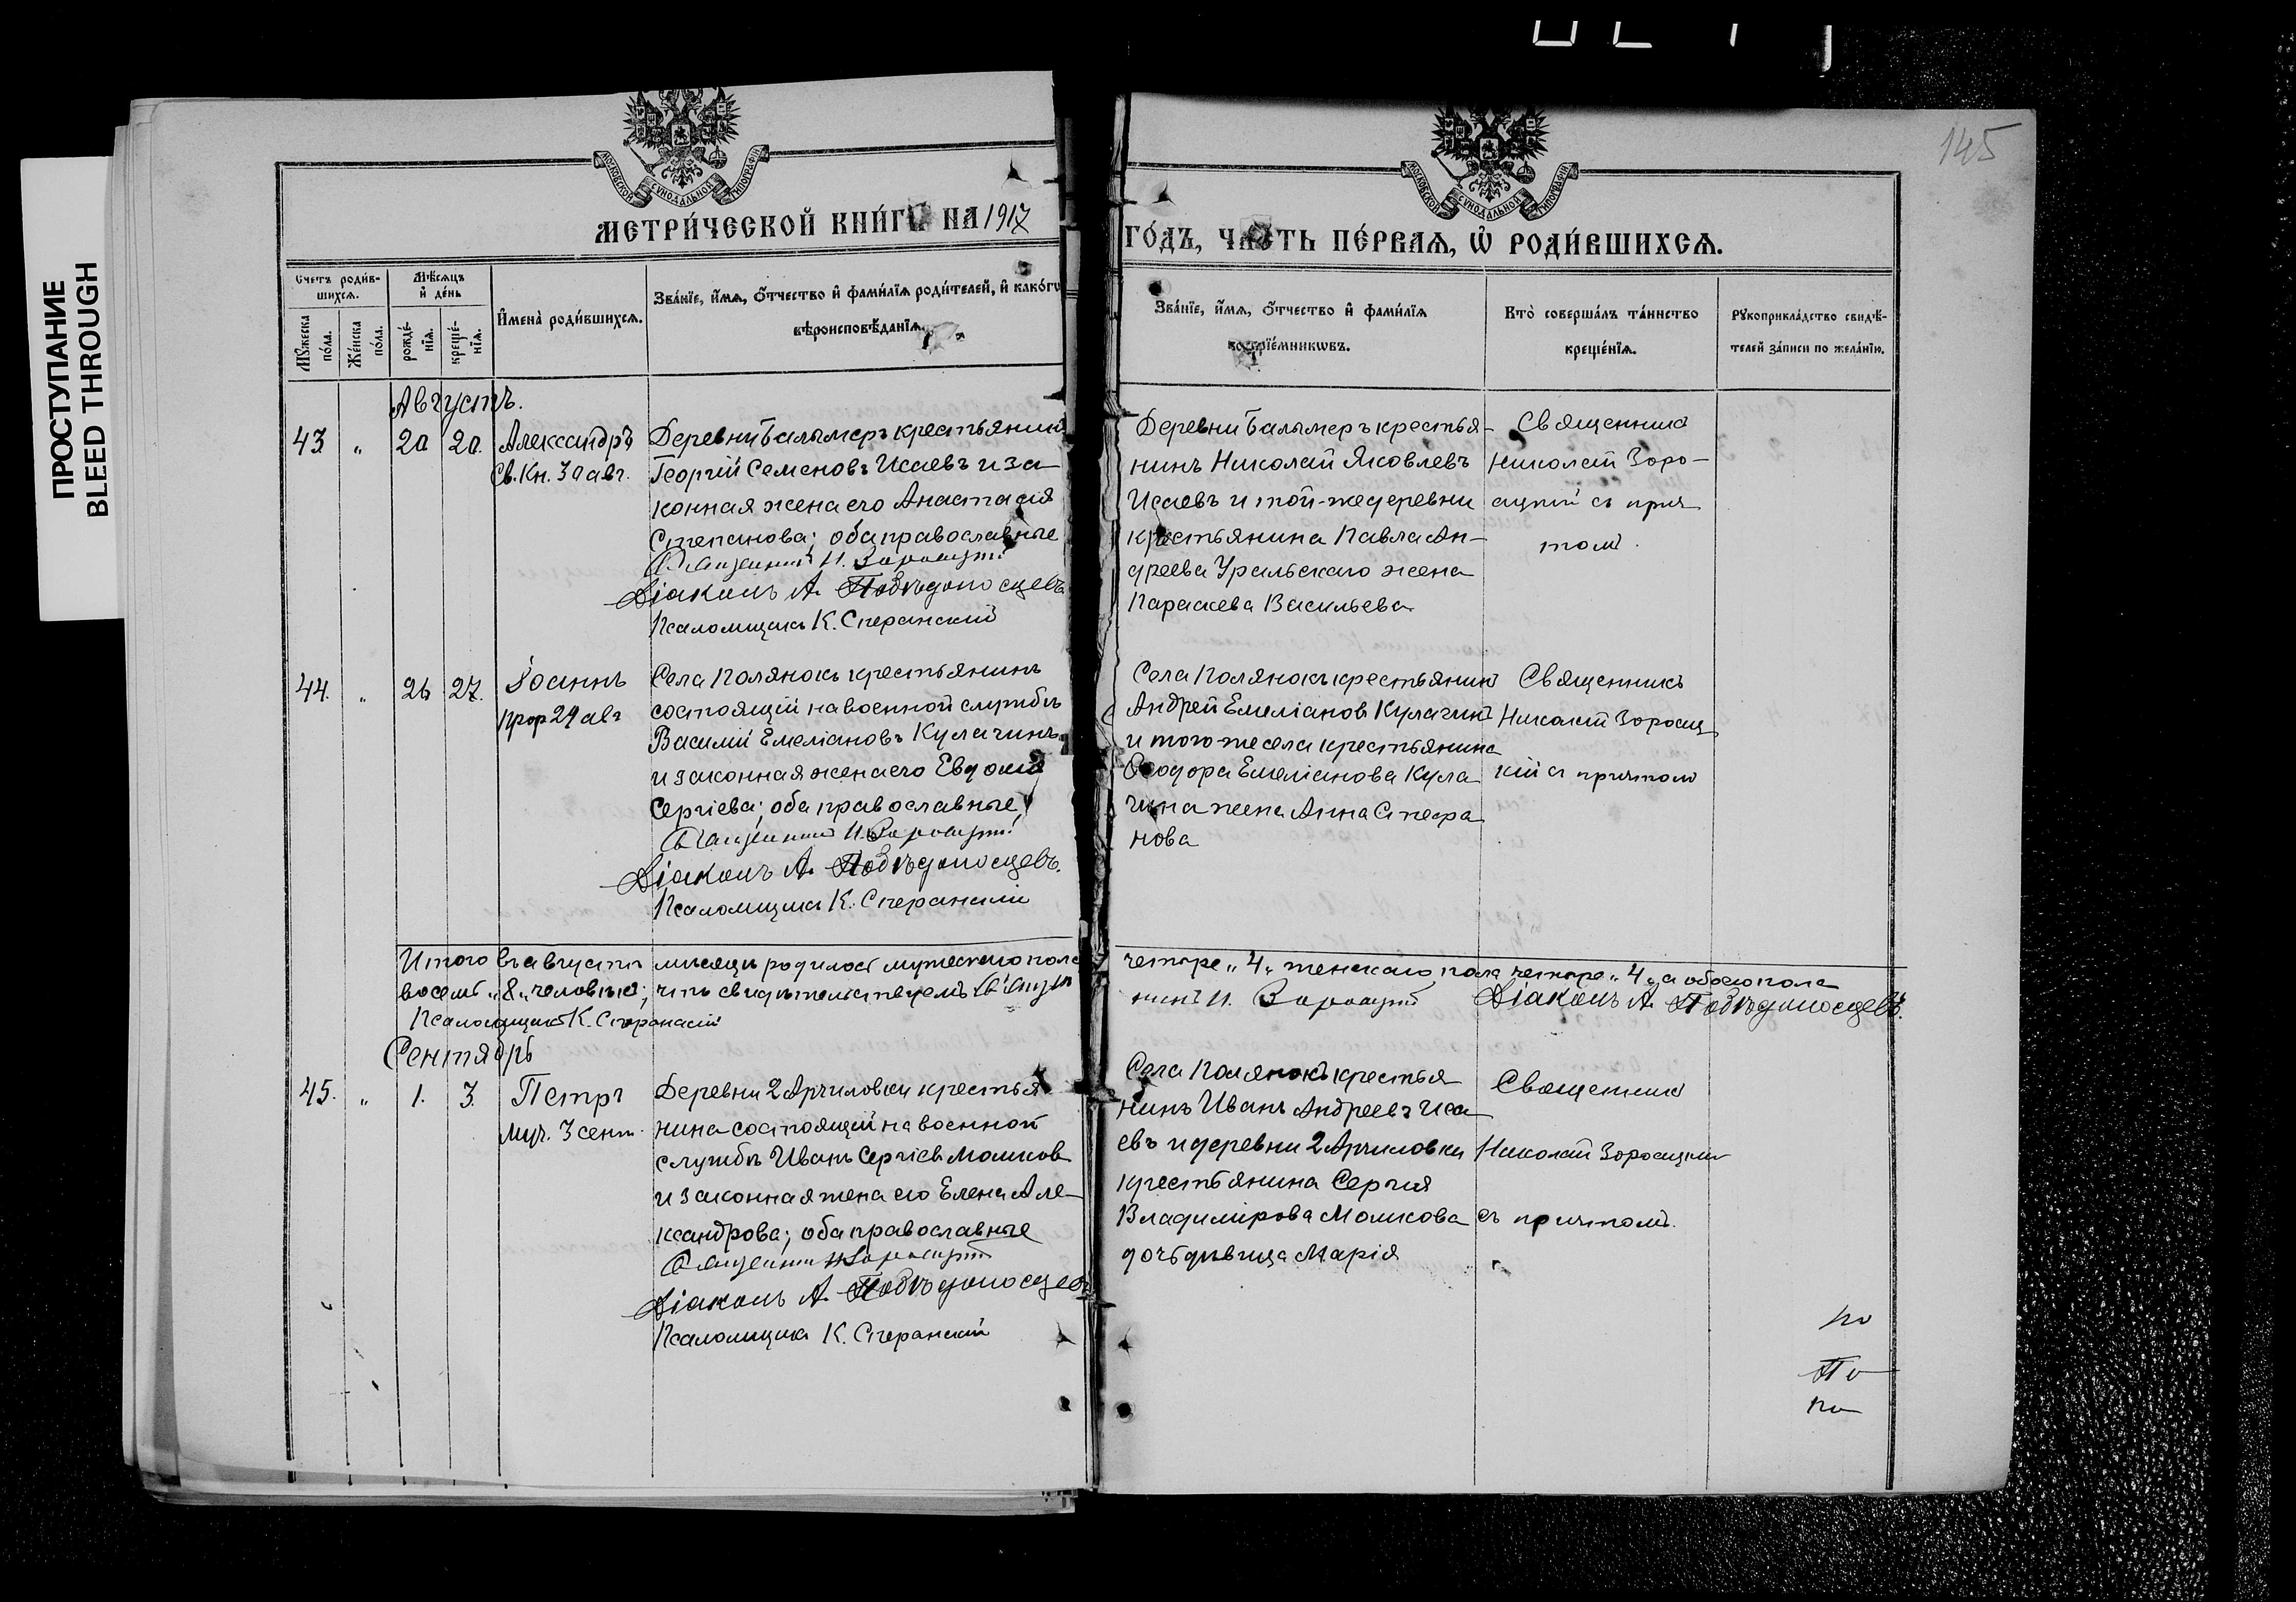 ПРОСТУПАНИЕ
BLEED THROUGH
145
МОСКОВСКОЙ СѴНОДАЛЬНОЙ ТИПОГРАФІИ
МОСКОВСКОЙ СѴНОДАЛЬНОЙ ТИПОГРАФІИ
МЕТРИ́ЧЕСКОЙ КНИ́ГИ НА 1917
ГО́ДЪ, ЧА́СТЬ ПЕ́РВАѦ, Ѡ҆ РОДИ́ВШИХСѦ.
Счетъ роди́в-
шихсѧ.
Мѣ́сѧцъ
и҆ де́нь
Мꙋ́жеска
по́ла.
Же́нска
по́ла.
рожде́-
нїѧ.
креще́-
нїѧ.
И҆мена̀ роди́вшихсѧ.
Зва́нїе, и҆́мѧ, ѻ҆́тчество и҆ фами́лїѧ роди́телей, и҆ како́гѡ
вѣроисповѣ́данїѧ.
Зва́нїе, и҆́мѧ, ѻ҆́тчество и҆ фами́лїѧ
воспрїе́мникѡвъ.
Кто̀ соверша́лъ та́инство
креще́нїѧ.
Рꙋкоприкла́дство свидѣ́-
телей за́писи по жела́нїю.
Августъ.
43 „ 20 20. Александръ
Св. Кн. 30 авг.
Деревни Балымеръ крестьянинъ
Георгій Семеновъ Исаевъ и за-
конная жена его Анастасія
Степанова; оба православные
Священникъ Н. Зороацкій
Діаконъ А. Побѣдоносцевъ
Псаломщикъ К. Сперанскій
Деревни Балымеръ крестья-
нинъ Николай Яковлевъ
Исаевъ и той-же деревни
крестьянина Павла Ан-
дреева Уральскаго жена
Параскева Васильева
Священникъ
Николай Зоро-
ацкій съ прич
томъ.
44. „ 26 27. Іоаннъ
прор 29 авг
Села Полянокъ крестьянинъ
состоящій на военной службѣ
Василій Емеліановъ Кулагинъ
и законная жена его Евдокія
Сергіева; оба православные
Священникъ Н. Зороацкій
Діаконъ А. Побѣдоносцевъ.
Псаломщикъ К. Сперанскій
Села Полянокъ крестьянинъ
Андрей Емеліановъ Кулагинъ
и того-же села крестьянина
Ѳеодора Емеліанова Кула
гина жена Анна Стефа
нова
Священникъ
Николай Зороац
кій съ причтомъ
Итого въ августѣ мѣсяцѣ родилось мужескаго пола четыре „4„ женскаго пола четыре „4„ а обоего пола
восемь „8„ человѣкъ; чтъ свидѣтельствуемъ Священ нинъ Н. Зороацкій Діаконъ А. Побѣдоносцевъ.
Псаломщикъ К. Сперанскій
Сентябрь
45. „ 1. 3. Петръ
муч. 3 сент.
Деревни 2 Арчиловки крестья
нина состоящій на военной
службѣ Иванъ Сергіевъ Мошков
и законная жена его Елена Але-
ксандрова; оба православные
Священникъ Н. Зороацкій
Діаконъ А. Побѣдоносцевъ
Псаломщикъ К. Сперанскій
Села Полянокъ крестья
нинъ Иванъ Андреевъ Иса
евъ и деревни 2 Арчиловки
крестьянина Сергія
Владимірова Мошкова
дочь дѣвица Марія
Священникъ
Николай Зороацкій
съ причтомъ.
по
По
по